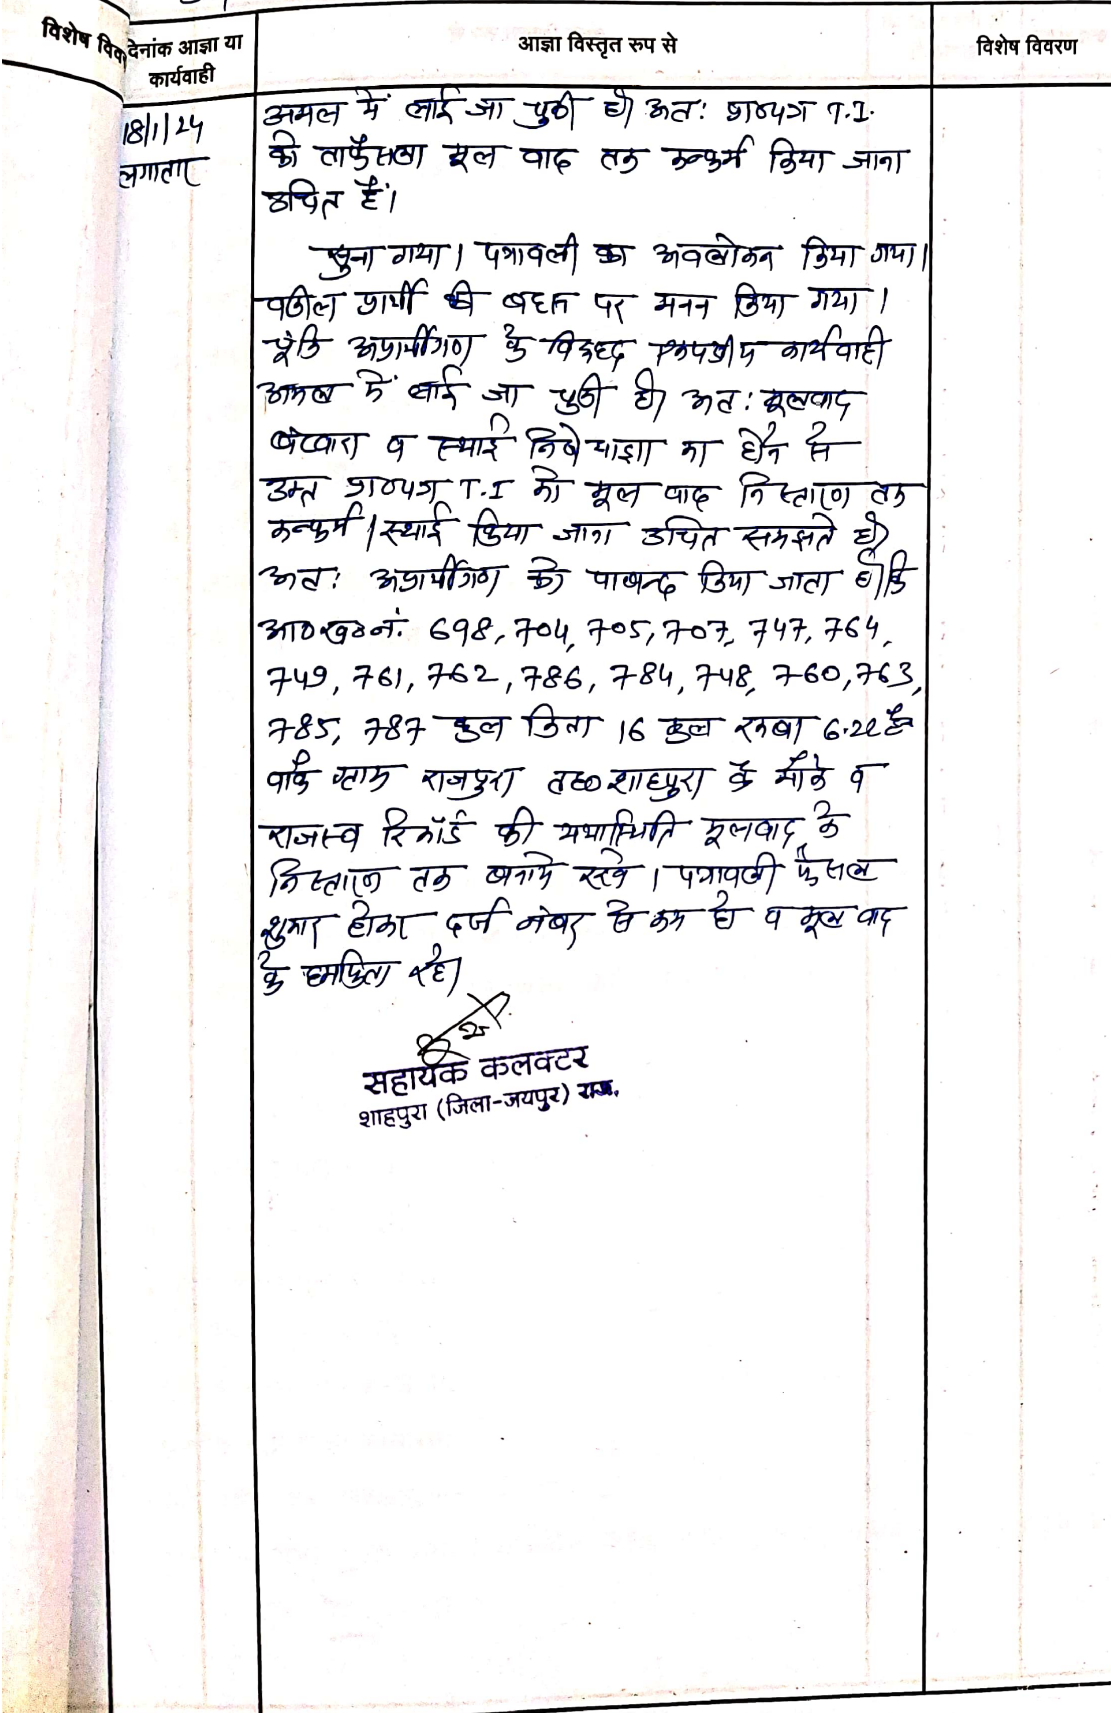 विशेष विव
देनांक आज्ञा या
कार्यवाही
आज्ञा विस्तृत रुप से
विशेष विवरण
18/1/24
लगातार
अमल में लाई जा चुकी है। अतः प्रा०पत्र T.I.
को ताफैसला मूल वाद तक कन्फर्म किया जाना
उचित है।
सुना गया। पत्रावली का अवलोकन किया गया।
वकील प्रार्थी की बहस पर मनन किया गया।
चूंकि अप्रार्थीगण के विरुद्ध एकपक्षीय कार्यवाही
अमल में लाई जा चुकी है। अतः मूलवाद
बंटवारा व स्थाई निषेधाज्ञा का होने से
उक्त प्रा०पत्र T.I को मूल वाद निस्तारण तक
कन्फर्म/स्थाई किया जाना उचित समझते है।
अतः अप्रार्थीगण को पाबन्द किया जाता है। कि
आ०ख०नं. 698, 704, 705, 707, 747, 764,
749, 761, 762, 786, 784, 748, 760, 763,
785, 787 कुल किता 16 कुल रकबा 6.22 है०
वाके ग्राम राजपुरा तह० शाहपुरा के मौके व
राजस्व रिकॉर्ड की यथास्थिति मूलवाद के
निस्तारण तक बनाये रखे। पत्रावली फैसल
शुमार होकर दर्ज नंबर से कम हो व मूल वाद
के हमफिता रहे।
सहायक कलक्टर
शाहपुरा (जिला-जयपुर) राज.